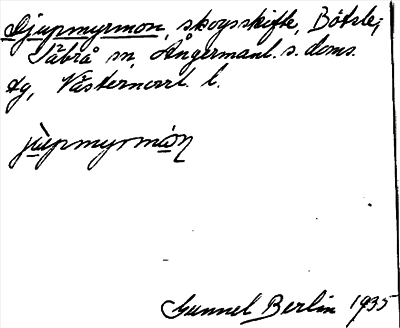 Djupmyrmon, skogsskifte, Bölsle,
Säbrå sn, Ångermanl. s. doms.
dg, Västernorrl. l.
jùpmyrmóṇ
Gunnel Berlin 1935